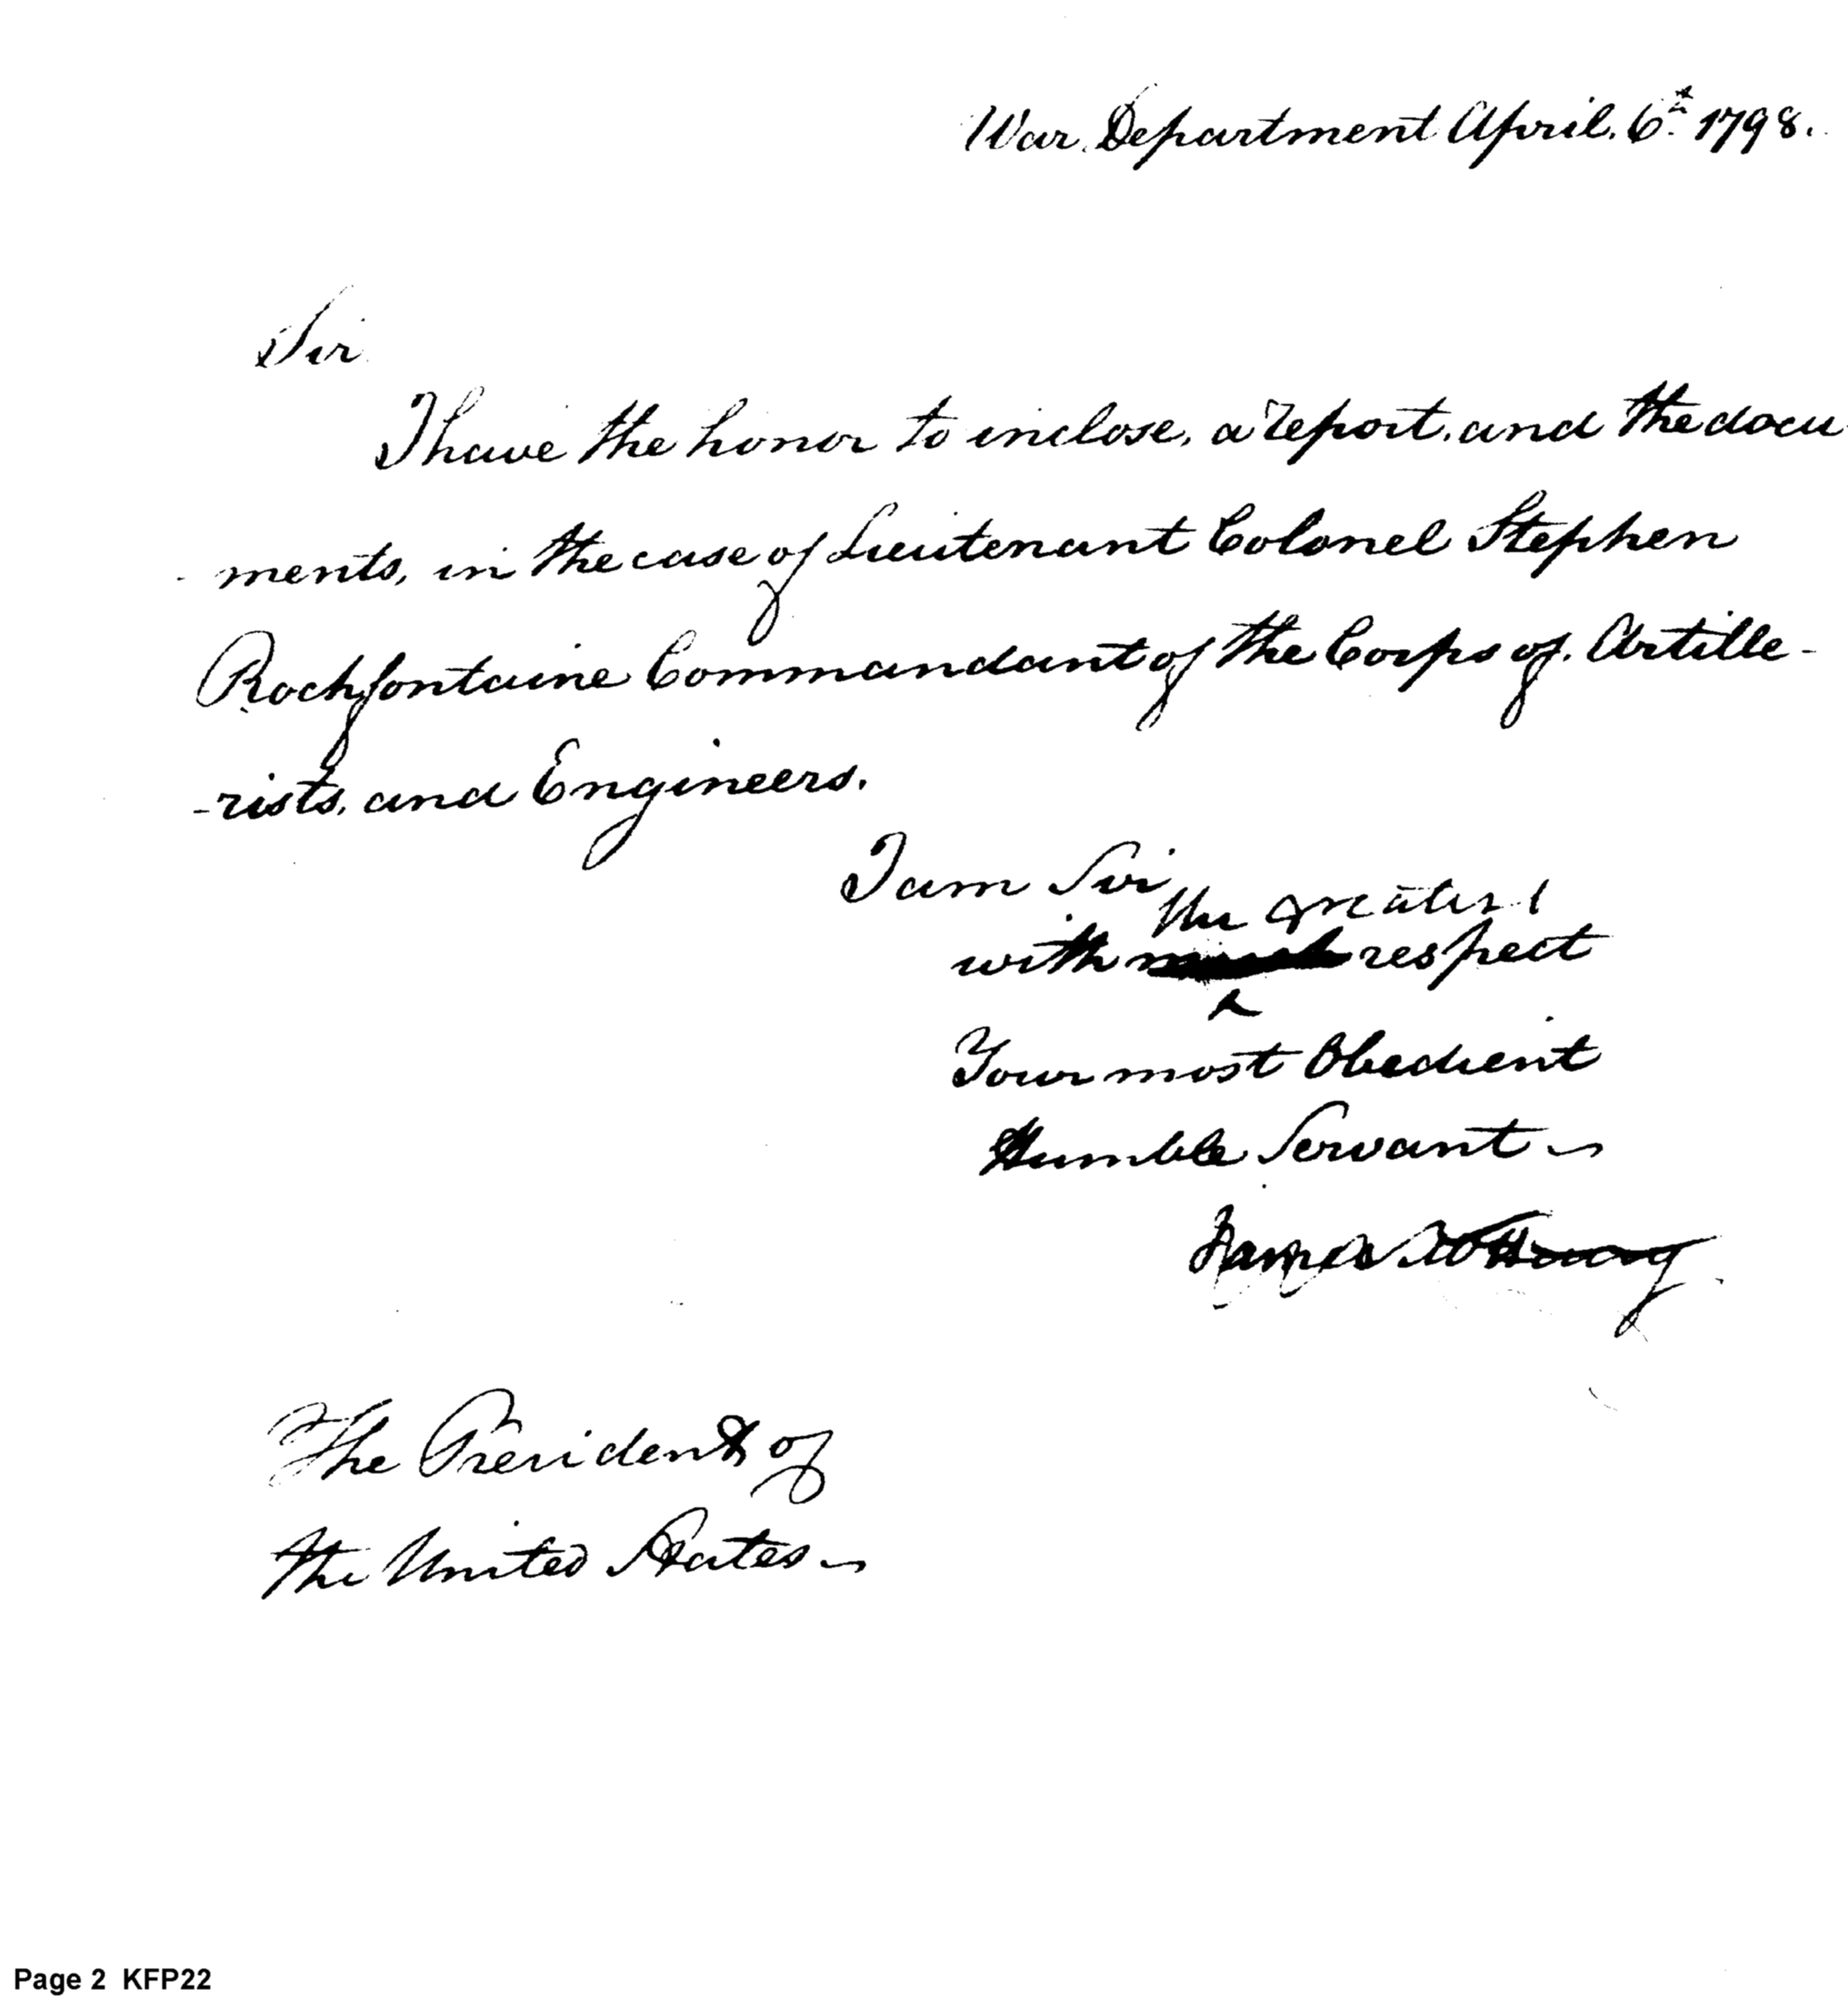 War Department April. 6th 1798.
Sir
I have the honor to inclose, a report, and the docu
- ments, in the case of Lieutenant Colonel Stephen
Rochfontaine Commandant of the Corps of Artille-
-rists, and Engineers.
I am Sir
the greatest
with respect
^
Your most Obedient
Humble Servant
James McHenry
The President of
the United States
Page 2 KFP22